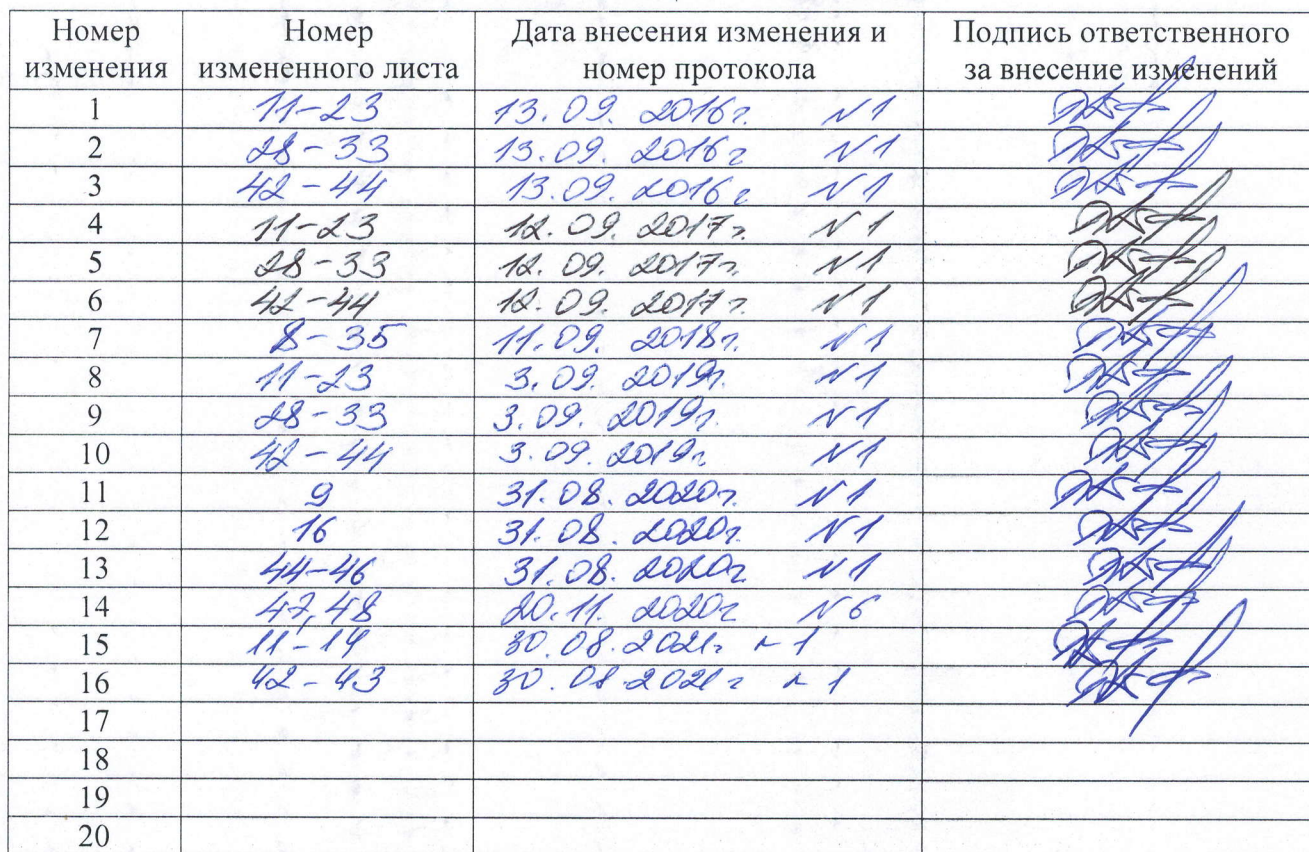 Номер Номер Дата внесения изменения и Подпись ответственного
изменения измененного листа номер протокола за внесение изменений
1 11-23 13.09. 2016г. N1
2 28-33 13.09. 2016г N1
3 42-44 13.09. 2016г N1
4 11-23 12.09. 2017г. N1
5 28-33 12.09. 2017г. N1
6 42-44 12.09. 2017г. N1
7 8-35 11.09. 2018г. N1
8 11-23 3.09. 2019г. N1
9 28-33 3.09. 2019г. N1
10 42-44 3.09. 2019г N1
11 9 31.08. 2020г. N1
12 16 31.08. 2020г. N1
13 44-46 31.08. 2020г N1
14 47,48 20.11. 2020г N6
15 11-19 30.08.2021г N1
16 42-43 30.08.2021г N1
17
18
19
20